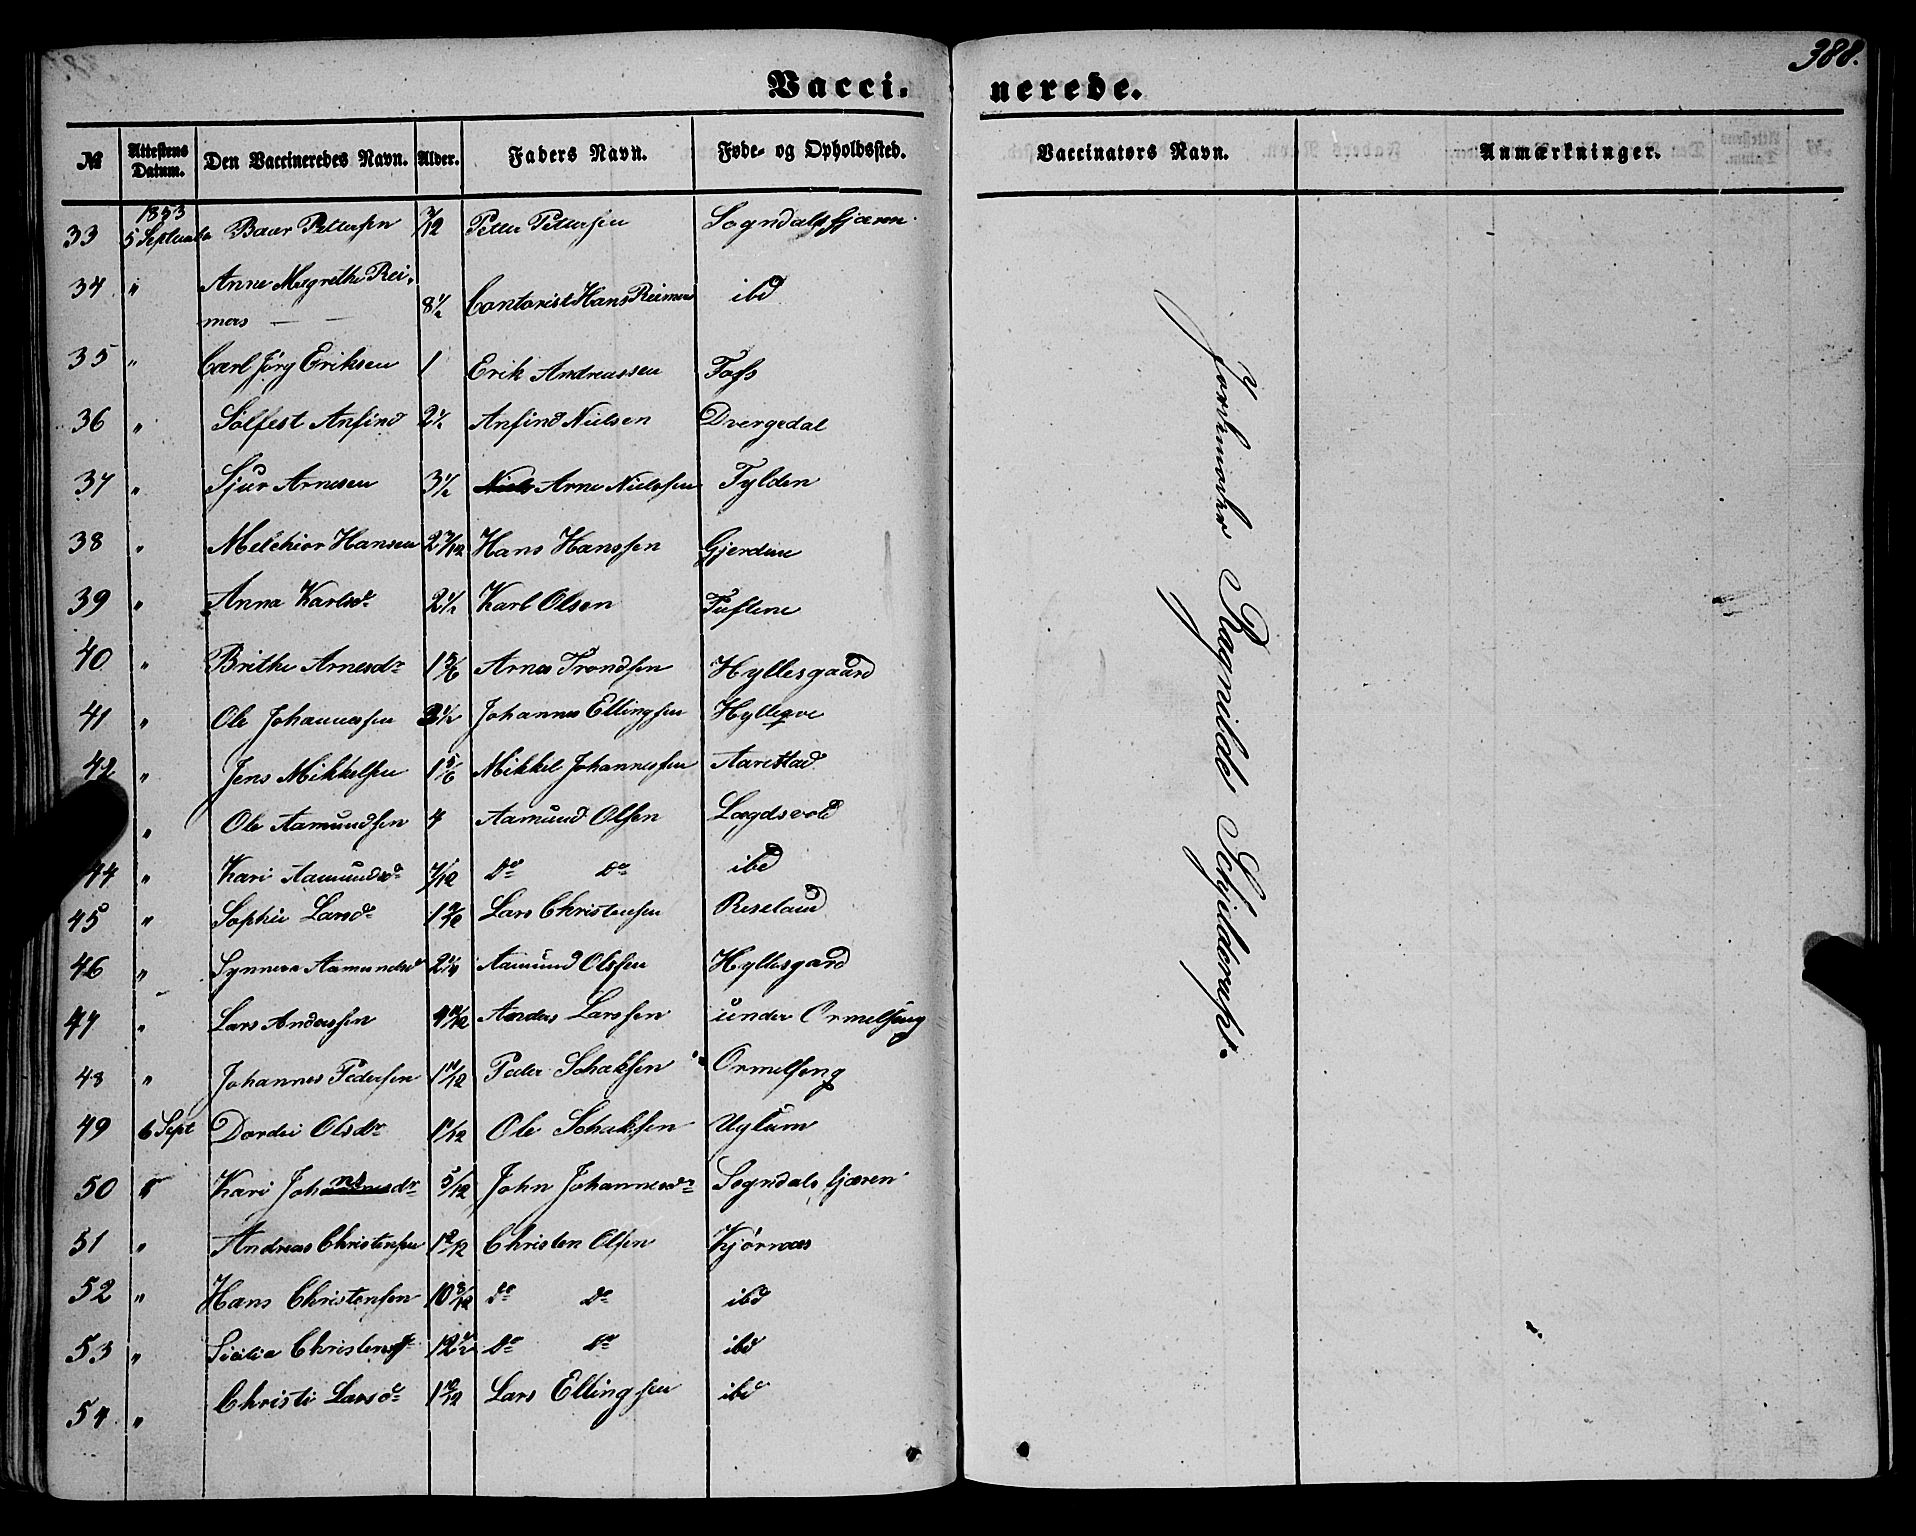 388.
Vacci- nerede.
№ Attestens Datum. Den Vaccineredes Navn. Alder. Faders Navn. Føde- og Opholdssted. Vaccinators Navn. Anmærkninger.
1853
33 5 September Baar Pettersen 7/12 Petter Pettersen Sogndalsfjæren
34 " Anne Magrethe Rei-
mers 8 1/2 Contorist Hans Reimers ibd
35 " Carl Jørg Eriksen 1 Erik Andreassen Foss
36 " Solfest Anfind 2 1/2 Anfind Nielsen Dvergedal
37 " Sjur Arnesen 3 1/2 Arne Nielssen Fylden
38 " Melchior Hansen 2 7/12 Hans Hanssen Gjerdene
39 " Anna Karlsd 2 1/2 Karl Olsen Tuftene
40 " Brithe Arnesdr 1 5/6 Arne Trondsen Hyllesgaard
41 " Ole Johannessen 3 1/2 Johannes Ellingsen Hylleqve
42 " Jens Mikkelsen 1 5/6 Mikkel Johannessen Aarestad
" Ole Aamundsen 4 Aamund Olsen Lægdsvold
44 " Kari Aamundsd 7/12 do do ibd
45 " Sophie Larsd Lars Christensen Reseland
46 " Synneva Aamundsd 2 1/4 Aamund Olssen Hyllesgard
47 " Lars Anderssen Anders Larssen under Ormelseng
48 " Johannes Pedersen 1 11/12 Peder Schaksen Ormelseng
49 6 Sept Dordei Olsdr Ole Schaksen Uglum
50 " Kari Johnsdr 5/12 John Johannesd Sogndalsfjæren
51 " Andreas Christensen Christen Olsen Kjørnæs
52 " Hans Christensen 10 3/12 do do ibd
53 " Sicilia Christensd 12 1/2 do do ibd
54 " Christi Larsd 1 10/12 Lars Ellingsen ibd
Jordemoder Ragnilde Schjelderups.